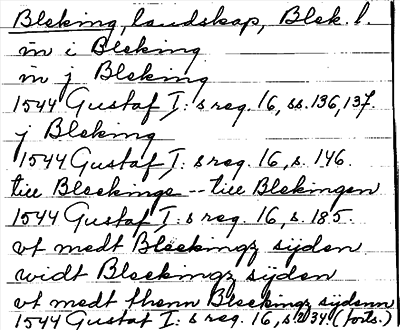 Bleking, landskap, Blek. l.
in i Bleking
in j Bleking
1544 Gustaf I:s reg. 16, ss. 136, 137.
j Bleking
1544 Gustaf I:s reg. 16, s. 146.
till Bleckinge -- till Blekingen
1544 Gustaf I:s reg. 16, s. 185.
vt medt Bleckingz sijden
widt Bleckingz sijden
vt medt thenn Bleckingz sijdenn
1544 Gustaf I:s reg. 16, s. 234 (forts.)